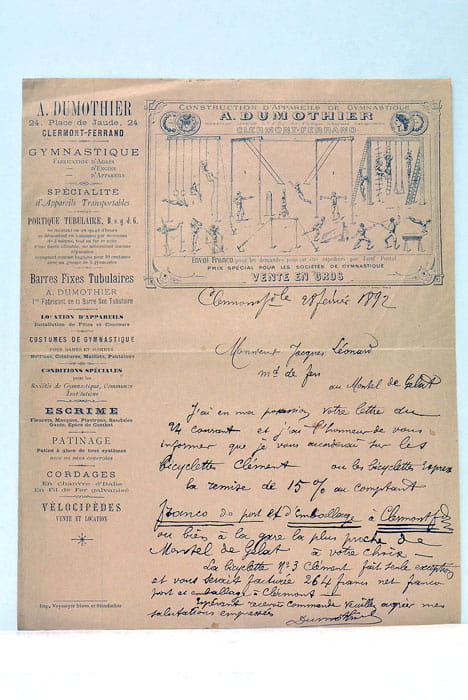 A. DUMOTHIER
24, Place de Jaude, 24
CLERMONT-FERRAND
GYMNASTIQUE
FABRICATION D'AGRÈS
— D'ENGINS
— D'APPAREILS
SPÉCIALITÉ
d'Appareils Transportables
PORTIQUE TUBULAIRE, B. s. g. d. G.
Barres Fixes Tubulaires
A. DUMOTHIER
1er Fabricant de la Barre fixe Tubulaire
LOCATION D'APPAREILS
Installation de Fêtes et Concours
COSTUMES DE GYMNASTIQUE
POUR DAMES ET HOMMES
Bottines, Ceintures, Maillots, Pantalons
CONDITIONS SPÉCIALES
pour les
Sociétés de Gymnastique, Communes
Instituteurs
ESCRIME
Fleurets, Masques, Plastrons, Sandales
Gants, Epées de Combat
PATINAGE
Patins à glace de tous systèmes
CORDAGES
En Chanvre d'Italie
En Fil de Fer galvanisé
VÉLOCIPÈDES
VENTE ET LOCATION
CONSTRUCTION D'APPAREILS DE GYMNASTIQUE
A. DUMOTHIER
CLERMONT-FERRAND
Envoi Franco
PRIX SPÉCIAL POUR LES SOCIÉTÉS DE GYMNASTIQUE
VENTE EN GROS
Clermont le 28 février 1892
Monsieur Jacques Léonard
md de fer
au Montel de Gélat
J'ai en ma possession votre lettre du
24 courant et j'ai l'honneur de vous
informer que je vous accorderai sur les
bicyclettes Clément ou les bicyclettes
la remise de 15% au comptant
Franco de port et d'emballage à Clermont fd
ou bien à la gare la plus proche de
Montel de Gelat à votre choix —
La bicyclette No 3 Clément fait seule exception
et vous serait facturée 264 francs net franco
port et emballage à Clermont —
Espérant recevoir commande veuillez agréer mes
salutations empressées
Dumothier
Imp. Veysseyre